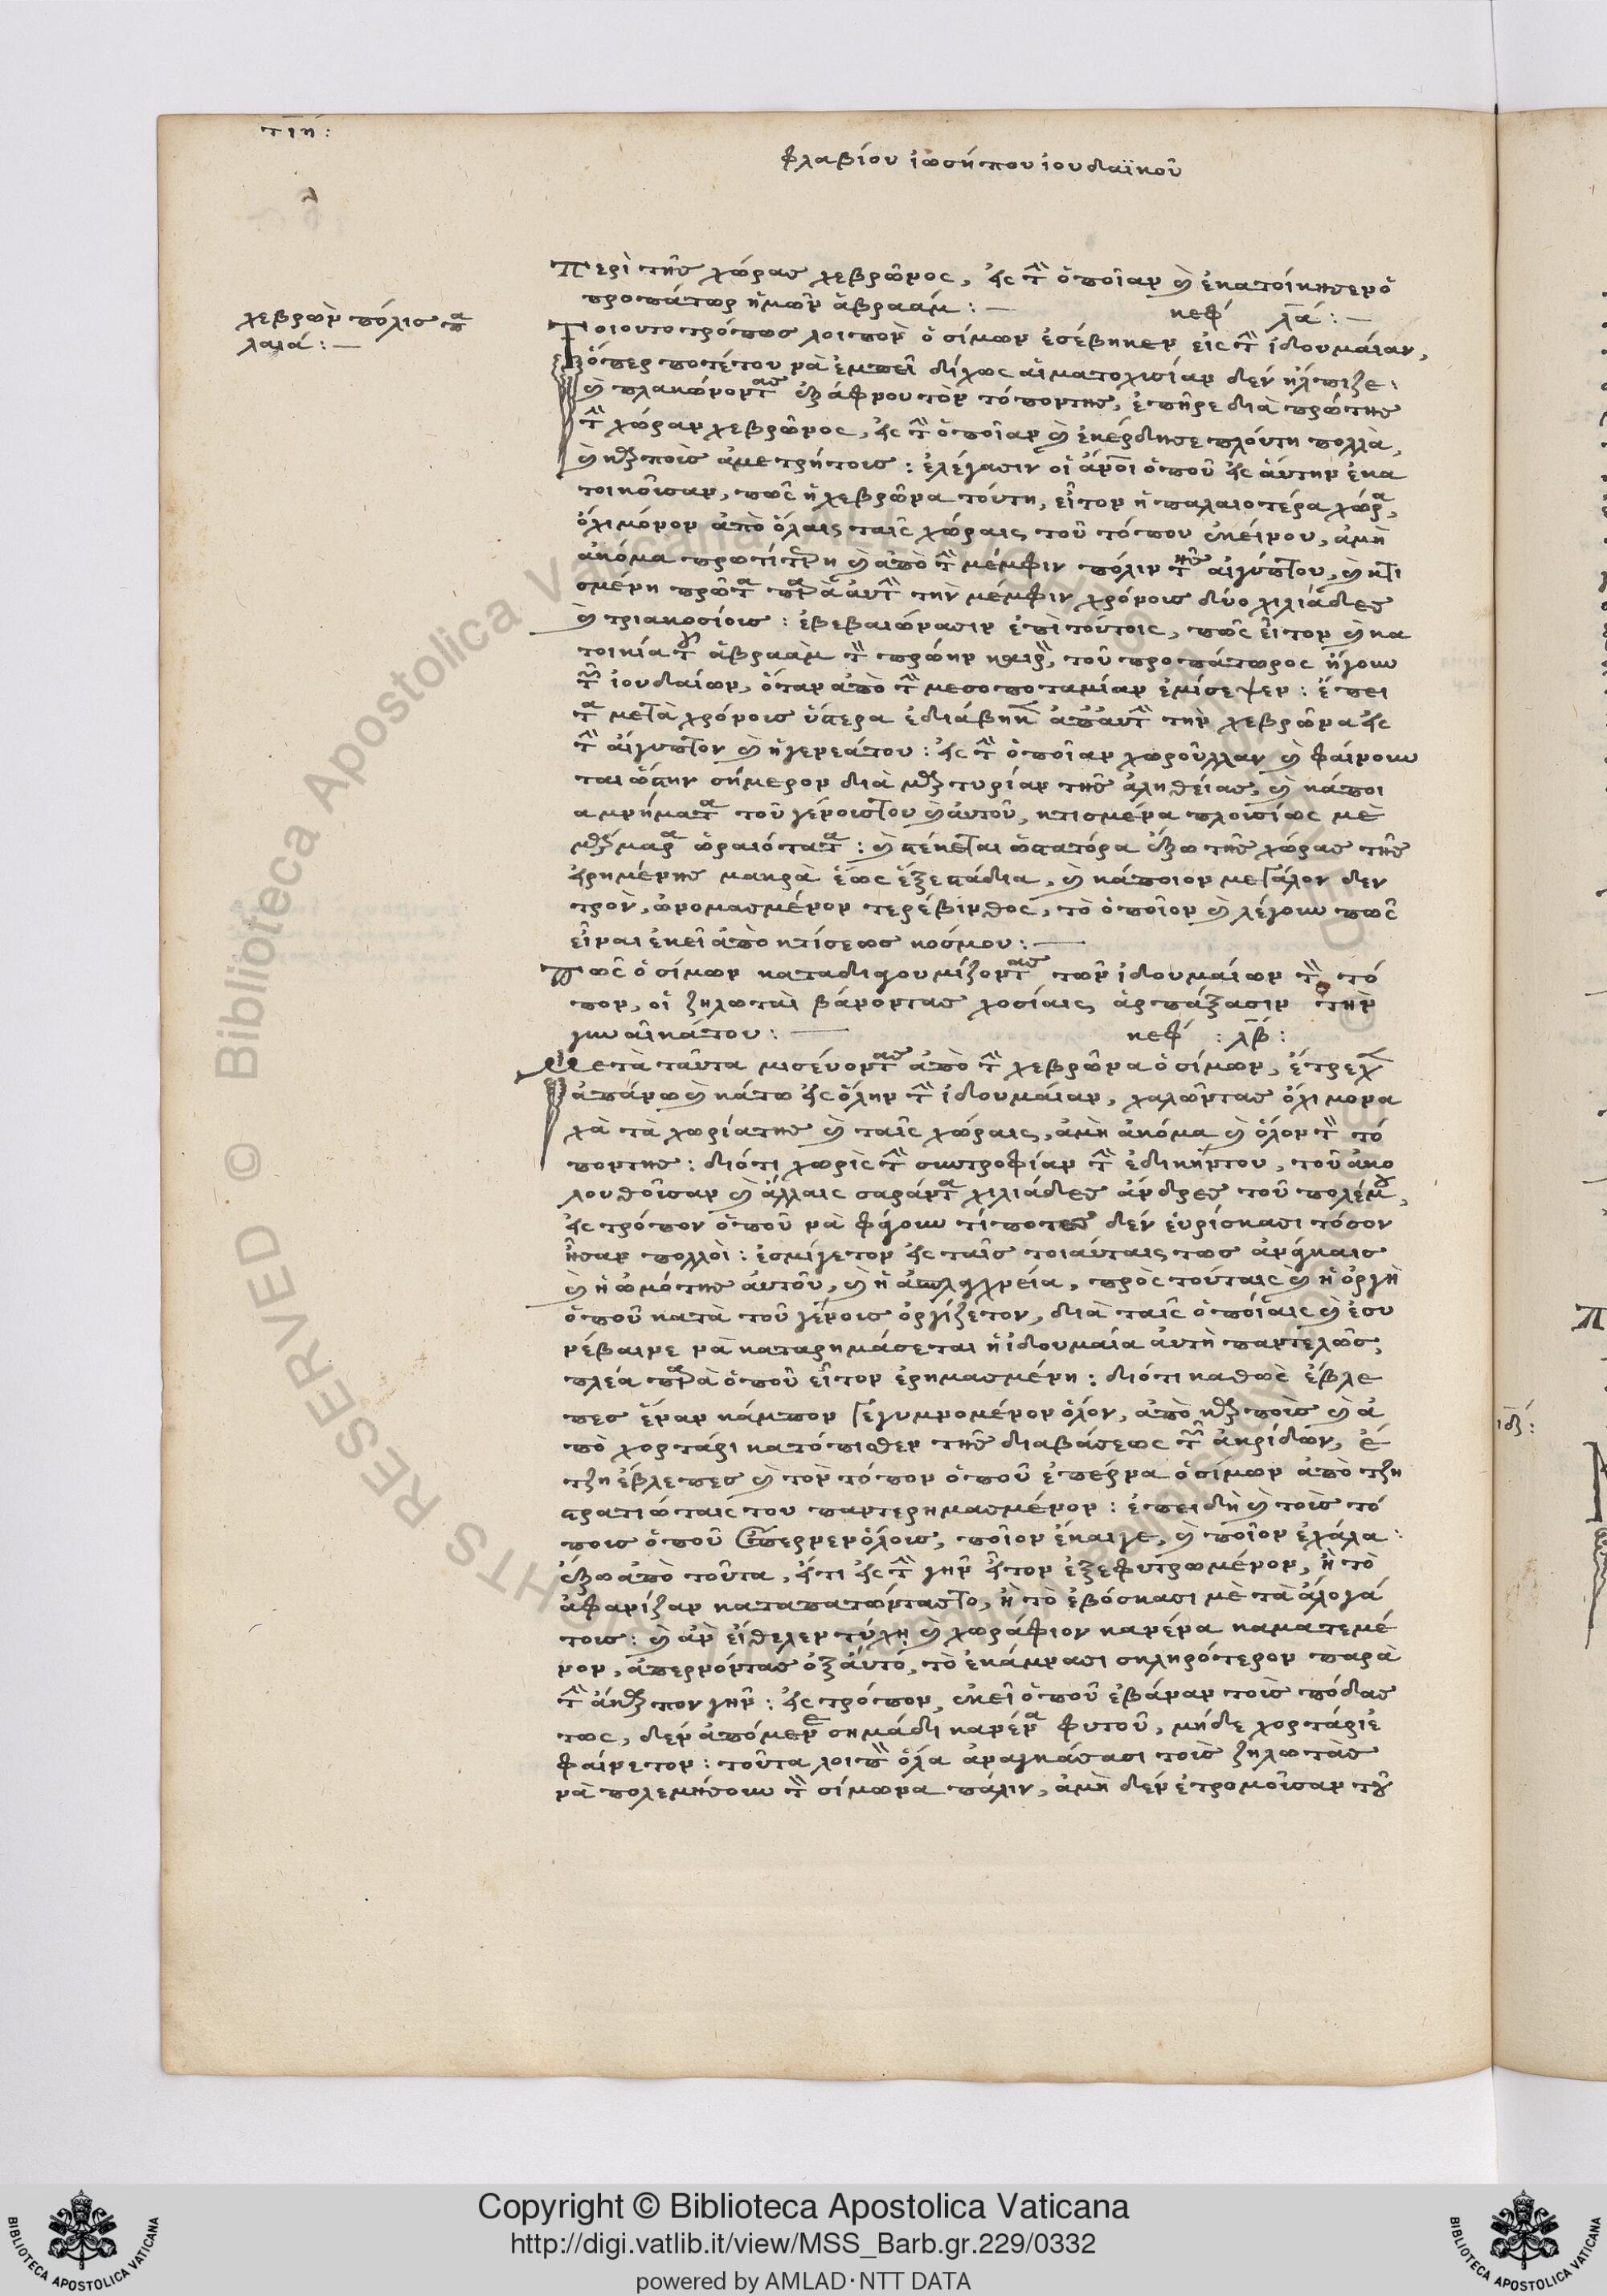 τιη:
φλαβίου ἰωσήπου ἰουδαϊκοῦ
χεβρὼν πόλις πα
λαιά: —
Περὶ τῆς χώρας χεβρῶνος, εἰς τὴν ὁποῖαν καὶ ἐκατοίκησεν ὁ
προπάτωρ ἡμῶν ἀβραάμ: — κεφ λα: —
Τοιουτοτρόπως λοιπὸν ὁ σίμων ἐσέβηκεν εἰς τὴν ἰδουμαίαν,
ὅπερ ποτέτου νὰ ἐμπεῖ δίχως αἱματοχισίαν δὲν ἤλπιζε:
καὶ πλακώνοντας ἐξάφνου τὸν τόπον της, ἐπῆρε διὰ πρώτης
τὴν χώραν χεβρῶνος, εἰς τὴν ὁποῖαν καὶ ἐκέρδησε πλούτη πολλὰ,
καὶ καρποὺς ἀμετρήτους: ἐλέγασιν οἱ ἄνοι ὁποῦ εἰς αὐτὴν ἐκα
τοικοῦσαν, πῶς ἡ χεβρῶνα τούτη, εἶτον ἡ παλαιοτέρα χώρα,
ὄχι μόνον ἀπὸ ὅλαις ταῖς χώραις τοῦ τόπου ἐκείνου, ἀμὴ
ἀκόμα πρωτίτερη καὶ ἀπὸ τὴν μέμφιν πόλιν τῆς αἰγύπτου, καὶ κτι
σμένη πρῶτα παρὰ αὐτὴν τὴν μέμφιν χρόνους δύο χιλιάδες
καὶ τριακοσίους: ἐβεβαιώνασιν ἐπὶ τούτοις, πῶς εἶτον καὶ κα
τοικία τοῦ ἀβραὰμ τὸν πρώην καιρὸν, τοῦ προπάτωρος ἤγουν
τῶν ἰουδαίων, ὅταν ἀπὸ τὴν μεσοποταμίαν ἐμίσεψεν: ἔπει
τα μετὰ χρόνους ὕστερα ἐδιάβηκεν ἀπ' αὐτὴν τὴν χεβρῶνα εἰς
τὴν αἴγυπτον καὶ ἡ γενεάτου: εἰς τὴν ὁποῖαν χωροῦλλαν καὶ φαίνουν
ται ὥστην σήμερον διὰ μαρτυρίαν τῆς ἀληθείας, καὶ κάποι
α μνήματα τοῦ γένους του καὶ αὐτοῦ, κτισμένα πλουσίως μὲ
μάρμαρα ὡραιότατα: καὶ στέκεται ὡστατόρα ἔξω τῆς χώρας τῆς
εἰρημένης μακρὰ ἕως ἕξε στάδια, καὶ κάποιον μεγάλον δεν
τρὸν, ὠνομασμένον τερέβινθος, τὸ ὁποῖον καὶ λέγουν πῶς
εἶναι ἐκεῖ ἀπὸ κτίσεως κόσμου: —
Πῶς ὁ σίμων καταδιαγουμίζοντας τῶν ἰδουμαίων τὸν τό
πον, οἱ ζηλωταὶ βάνοντας χοσίαις ἁρπάξασιν τὴν
γυναῖκάτου: — κεφ : λβ:
Μετὰ ταῦτα μισεύοντας ἀπὸ τὴν χεβρῶνα ὁ σίμων, ἔτρεχεν
ἀπάνω καὶ κάτω εἰς ὅλην τὴν ἰδουμαίαν, χαλῶντας ὄχι μονα
χὰ τὰ χωρίατης καὶ ταῖς χώραις, ἀμὴ ἀκόμα καὶ ὅλον τὸν τό
πον της: διότι χωρὶς τὴν συντροφίαν τὴν ἐδικήντου, τοῦ ἀκο
λουθοῦσαν καὶ ἄλλαις σαράντα χιλιάδες ἄνδρες τοῦ πολέμου,
εἰς τρόπον ὁποῦ νὰ φάγουν τίποτες δὲν εὑρίσκασι τόσον
ἦσαν πολλοὶ: ἐσμίγετον εἰς ταῖς τοιαύταις τως ἀνάγκαις
καὶ ἡ ὠμότης αὐτοῦ, καὶ ἡ ἀπλαγχνεία, πρὸς τούταις καὶ ἡ ὀργὴ
ὁποῦ κατὰ τοῦ γένους ὀργίζετον, διὰ ταῖς ὁποίαις καὶ ἐσυ
νέβαινε νὰ καταρημάσεται ἡ ἰδουμαία αὐτὴ παντελῶς,
πλέα παρὰ ὁποῦ εἶτον ἐρημασμένη: διότι καθὼς ἔβλε
πες ἕναν κάμπον γεγυμνομένον ὅλον, ἀπὸ καρποὺς καὶ ἀ
πὸ χορτάρι κατόπισθεν τῆς διαβάσεως τῶν ἀκρίδων, ἔ
τζη ἔβλεπες καὶ τὸν τόπον ὁποῦ ἐπέρνα ὁ σίμων ἀπὸ τζη
στρατιώταις του παντερημασμένον: ἐπειδὴ καὶ τοὺς τό
πους ὁποῦ ἐπέρνεν ὅλους, ποῖον ἔκαιγε, καὶ ποῖον ἐχάλα:
ἔξω ἀπὸ τοῦτα, εἴτι εἰς τὴν γῆν εἶτον ἐξεφυτρωμένον, ἢ τὸ
ἀφανίζαν καταπατώντας το, ἢ τὸ ἐβόσκασι μὲ τὰ ἄλογά
τους: καὶ ἂν εἴθελεν τύχη καὶ χωράφιον κανένα καματεμέ
νον, ἀπερνόντας ὀξ αὐτό, τὸ ἐκάμνασι σκληρότερον παρὰ
τὴν ἄκαρπον γῆν: εἰς τρόπον, ἐκεῖ ὁποῦ ἐβάναν τοὺς πόδας
τως, δὲν ἀπόμενε σημάδι κανένα φυτοῦ, μήδε χορτάρι ἐ
φαίνετον: τοῦτα λοιπὸν ὅλα ἀναγκάσασι τοὺς ζηλωτὰς
νὰ πολεμήσουν τὸν σίμωνα πάλιν, ἀμὴ δὲν ἐτρομοῦσαν τοῦ
Copyright © Biblioteca Apostolica Vaticana
http://digi.vatlib.it/view/MSS_Barb.gr.229/0332
powered by AMLAD·NTT DATA